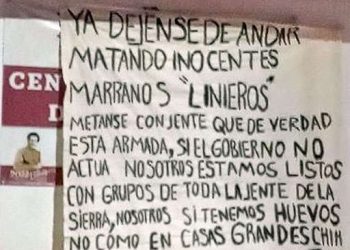 YA DEJENSE DE ANDAR
MATANDO INOCENTES
MARRANOS "LINIEROS"
METANSE CON JENTE QUE DE VERDAD
ESTA ARMADA, SI ELGOBIERNO NO
ACTUA NOSOTROS ESTAMOS LISTOS
CON GRUPOS DE TODA LAJENTE DE LA
SIERRA, NOSOTROS SI TENEMOS HUEVOS
NO COMO EN CASAS GRANDES CHIH
CEN
D